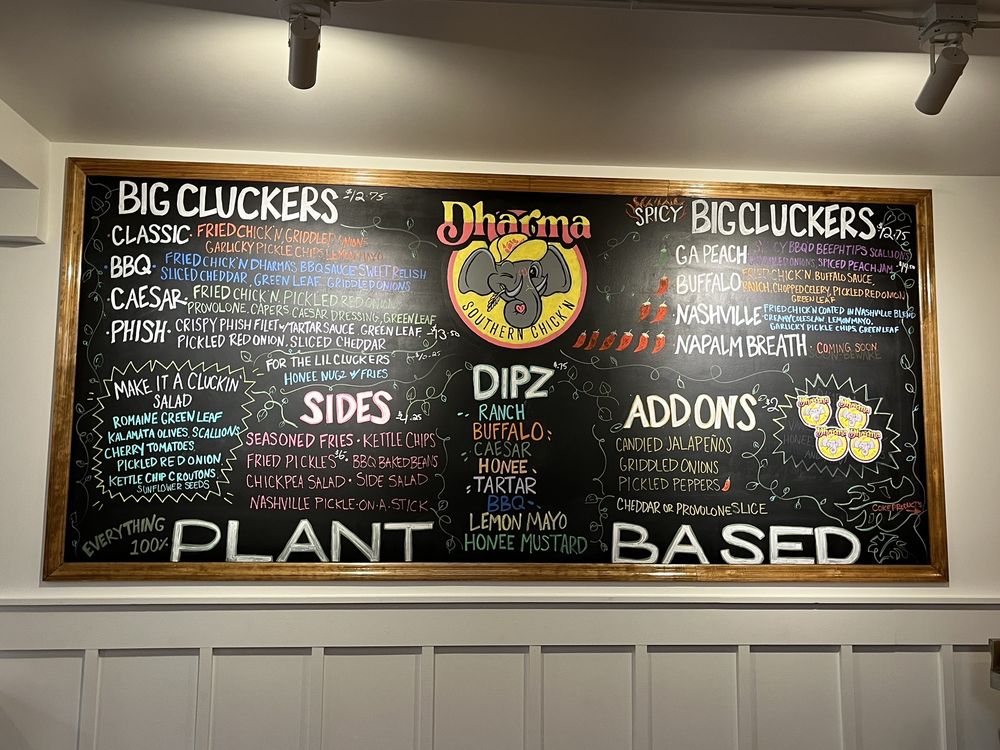 BIG CLUCKERS $12.75
CLASSIC · FRIED CHICK'N, GRIDDLED ONION
GARLICKY PICKLE CHIPS, LEMON MAYO
BBQ · FRIED CHICK'N, DHARMA'S BBQ SAUCE, SWEET RELISH
SLICED CHEDDAR, GREEN LEAF, GRIDDLED ONIONS
CAESAR · FRIED CHICK'N, PICKLED RED ONION
PROVOLONE, CAPERS, CAESAR DRESSING, GREEN LEAF
PHISH · CRISPY PHISH FILET w/ TARTAR SAUCE, GREEN LEAF $13.50
PICKLED RED ONION, SLICED CHEDDAR
FOR THE LIL CLUCKERS
HONEE NUGZ w/ FRIES
MAKE IT A CLUCKIN'
SALAD
ROMAINE GREEN LEAF
KALAMATA OLIVES, SCALLIONS
CHERRY TOMATOES
PICKLED RED ONION
KETTLE CHIP CROUTONS
SUNFLOWER SEEDS
SIDES
SEASONED FRIES · KETTLE CHIPS
FRIED PICKLES $6 · BBQ BAKED BEANS
CHICKPEA SALAD · SIDE SALAD
NASHVILLE PICKLE-ON-A-STICK
Dharma
SOUTHERN CHICK'N
DIPZ $.75
RANCH
BUFFALO
CAESAR
HONEE
TARTAR
BBQ
LEMON MAYO
HONEE MUSTARD
SPICY BIG CLUCKERS $12.75
GA PEACH BBQ'D BEEPH TIPS, SCALLIONS
SPICED PEACH JAM
BUFFALO FRIED CHICK'N, BUFFALO SAUCE,
RANCH, CHOPPED CELERY, PICKLED RED ONION
GREEN LEAF
· NASHVILLE FRIED CHICK'N COATED IN NASHVILLE BLEND
CREAMY COLESLAW, LEMON MAYO
GARLICKY PICKLE CHIPS, GREEN LEAF
NAPALM BREATH · COMING SOON
BEWARE
ADD ONS $2
CANDIED JALAPEÑOS
GRIDDLED ONIONS
PICKLED PEPPERS
CHEDDAR OR PROVOLONE SLICE
EVERYTHING
100% PLANT BASED